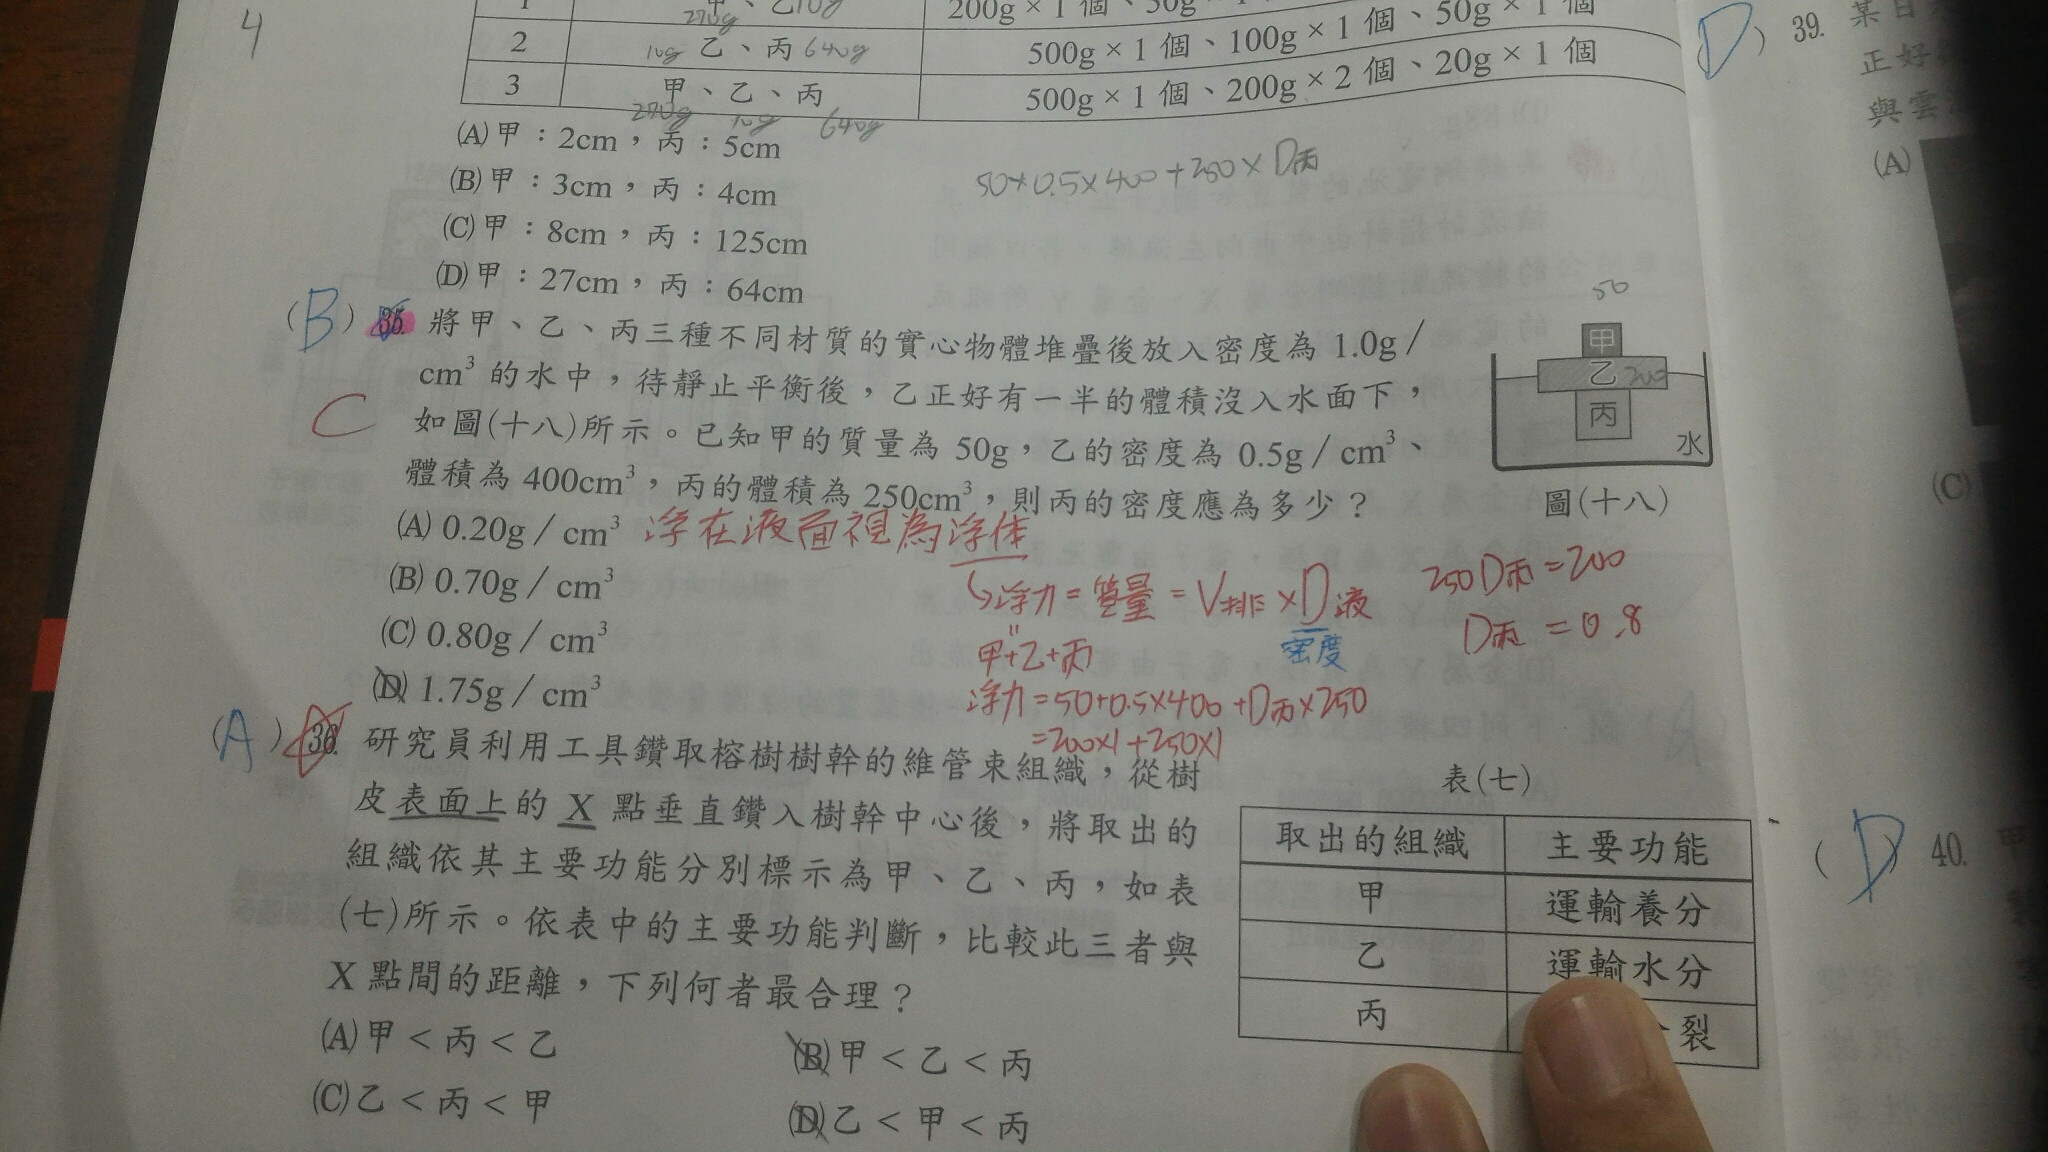 4
甲、乙10g
200g × 1 個、50g
270g
2
10g 乙、丙 640g
500g × 1 個、100g × 1 個、50g × 1 個
3
甲、乙、丙
500g × 1 個、200g × 2 個、20g × 1 個
270g 10g 640g
(A)甲：2cm，丙：5cm
(B)甲：3cm，丙：4cm
(C)甲：8cm，丙：125cm
(D)甲：27cm，丙：64cm
50+0.5×400+250×D丙
(B) 35. 將甲、乙、丙三種不同材質的實心物體堆疊後放入密度為 1.0g/
cm³ 的水中，待靜止平衡後，乙正好有一半的體積沒入水面下，
C
如圖(十八)所示。已知甲的質量為 50g，乙的密度為 0.5g/cm³、
體積為 400cm³，丙的體積為 250cm³，則丙的密度應為多少？
50
甲
乙 200
丙
水
圖(十八)
(A) 0.20g/cm³ 浮在液面視為浮体
(B) 0.70g/cm³
(C) 0.80g/cm³
(D) 1.75g/cm³
↳浮力=質量=V排×D液
密度
"
甲+乙+丙
浮力=50+0.5×400+D丙×250
=200×1+250×1
250D丙=200
D丙=0.8
(A) 36. 研究員利用工具鑽取榕樹樹幹的維管束組織，從樹
皮表面上的 X 點垂直鑽入樹幹中心後，將取出的
組織依其主要功能分別標示為甲、乙、丙，如表
(七)所示。依表中的主要功能判斷，比較此三者與
X 點間的距離，下列何者最合理？
(A)甲<丙<乙
(B)甲<乙<丙
(C)乙<丙<甲
(D)乙<甲<丙
表(七)
取出的組織 主要功能
甲 運輸養分
乙 運輸水分
丙 裂
(D) 39. 某日
正好
與雲
(A)
(C)
(D) 40.